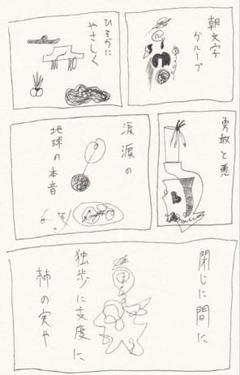 朝文字
グループ
ひそかに
やさしく
勇敢と悪
涙源の
地球の本音
閉じに間に
独歩に支度に
柿の実や